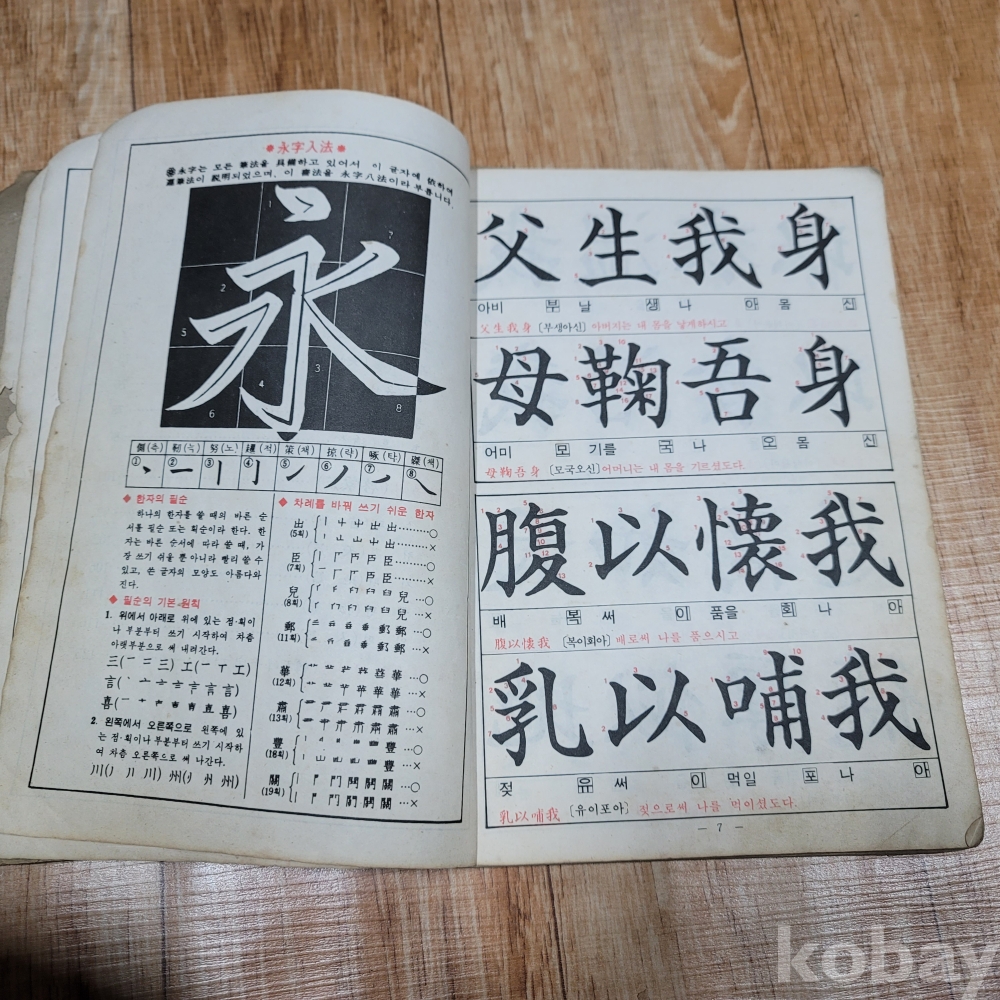 永字入法
㊟永字는 모든 筆法을 具備하고 있어서 이 글자에 依하여
運筆法이 説明되었으며, 이 書法을 永字八法이라 부릅니다.
永
1
7
2
3
5
4
6
8
側(측) 勒(늑) 努(노) 趯(적) 策(책) 掠(략) 啄(탁) 磔(책)
① ② ③ ④ ⑤ ⑥ ⑦ ⑧
◆ 한자의 필순
하나의 한자를 쓸 때의 바른 순
서를 필순 또는 획순이라 한다. 한
자는 바른 순서에 따라 쓸 때, 가
장 쓰기 쉬울 뿐 아니라 빨리 쓸 수
있고, 쓴 글자의 모양도 아름다와
진다.
◆ 필순의 기본 원칙
1. 위에서 아래로 위에 있는 점·획이
나 부분부터 쓰기 시작하여 차츰
아랫부분으로 써 내려간다.
三(一 二 三) 工(一 丅 工)
言(丶 亠 言 言)
喜(一 十 土 吉 吉 直 喜)
2. 왼쪽에서 오른쪽으로 왼쪽에 있
는 점·획이나 부분부터 쓰기 시작하
여 차츰 오른쪽으로 써 나간다.
川(丿 川 川) 州(州 州)
◆ 차례를 바꿔 쓰기 쉬운 한자
出
(5획)
臣
(7획)
兒
(8획)
郵
(11획)
華
(12획)
肅
(13획)
豊
(18획)
關
(19획)
父生我身
아비 부 날 생 나 아 몸 신
父生我身 [부생아신] 아버지는 내 몸을 낳게하시고
母鞠吾身
어미 모 기를 국 나 오 몸 신
母鞠吾身 [모국오신] 어머니는 내 몸을 기르셨도다.
腹以懷我
배 복 써 이 품을 회 나 아
腹以懷我 [복이회아] 배로써 나를 품으시고
乳以哺我
젖 유 써 이 먹일 포 나 아
乳以哺我 [유이포아] 젖으로써 나를 먹이셨도다.
— 7 —
kobay